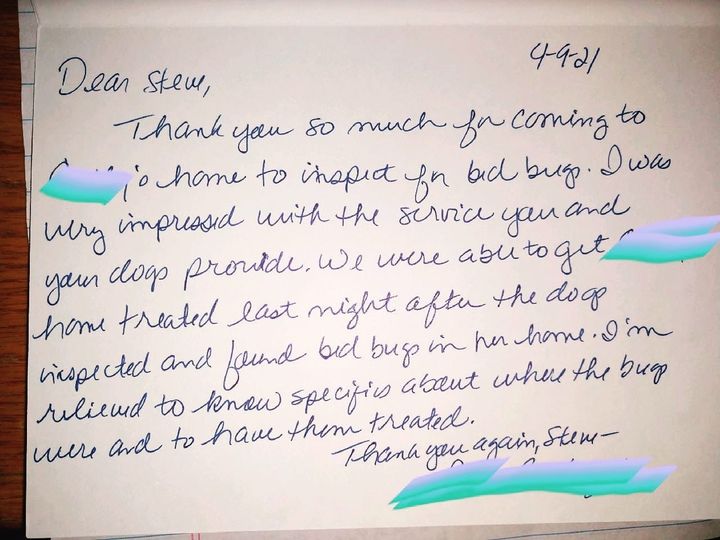 4-9-21
Dear Steve,
Thank you so much for coming to
's home to inspect for bed bugs. I was
very impressed with the service you and
your dogs provide. We were able to get
home treated last night after the dogs
inspected and found bed bugs in her home. I'm
relieved to know specifics about where the bugs
were and to have them treated.
Thank you again, Steve-